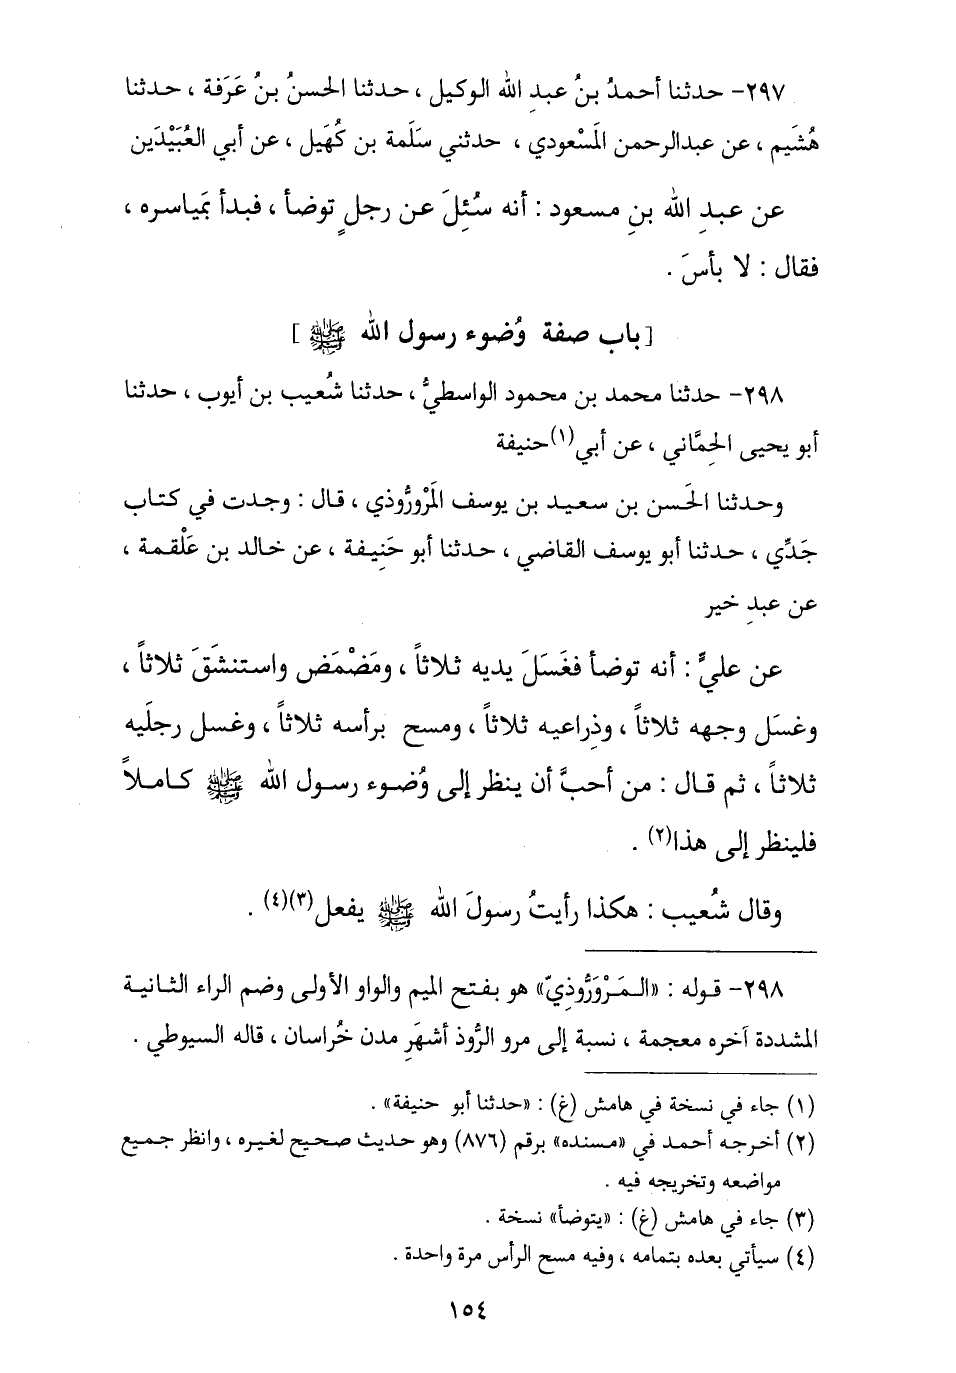 ٢٩٧- حدثنا أحمدُ بنُ عبدِ الله الوكيل ، حدثنا الحسنُ بنُ عَرَفة ، حدثنا
هُشَيم ، عن عبدالرحمن المَسْعودي ، حدثني سَلَمة بن كُهَيل ، عن أبي العُبَيْدَين
عن عبدِ الله بنِ مسعود : أنه سُئِلَ عن رجلٍ توضأ ، فبدأ بمَياسره ،
فقال : لا بأسَ .
[باب صفة وُضوء رسول الله ﷺ ]
٢٩٨- حدثنا محمد بن محمود الواسطيُّ ، حدثنا شُعيب بن أيوب ، حدثنا
أبو يحيى الحِمَّاني ، عن أبي(١)حنيفة
وحدثنا الحَسن بن سعيد بن يوسف المَرْورُّوذي ، قال : وجدت في كتاب
جَدِّي ، حدثنا أبو يوسف القاضي ، حدثنا أبو حَنِيفة ، عن خالد بن عَلْقمة ،
عن عبدِ خير
عن عليٍّ : أنه توضأ فغَسَلَ يديه ثلاثاً ، ومَضْمَض واستنشَقَ ثلاثاً ،
وغسَل وجهه ثلاثاً ، وذِراعيه ثلاثاً ، ومسح برأسه ثلاثاً ، وغسل رجلَيه
ثلاثاً ، ثم قال : من أحبَّ أن ينظر إلى وُضوء رسول الله ﷺ كاملاً
فلينظر إلى هذا(٢) .
وقال شُعيب : هكذا رأيتُ رسولَ الله ﷺ يفعل(٣)(٤) .
٢٩٨- قوله : «المَرْوَرُّوذِيّ» هو بفتح الميم والواو الأولى وضم الراء الثانية
المشددة آخره معجمة ، نسبة إلى مرو الرُّوذ أشهَرِ مدن خُراسان ، قاله السيوطي .
(١) جاء في نسخة في هامش (غ) : «حدثنا أبو حنيفة» .
(٢) أخرجه أحمد في «مسنده» برقم (٨٧٦) وهو حديث صحيح لغيره ، وانظر جميع
مواضعه وتخريجه فيه .
(٣) جاء في هامش (غ) : «يتوضأ» نسخة .
(٤) سيأتي بعده بتمامه ، وفيه مسح الرأس مرة واحدة .
١٥٤